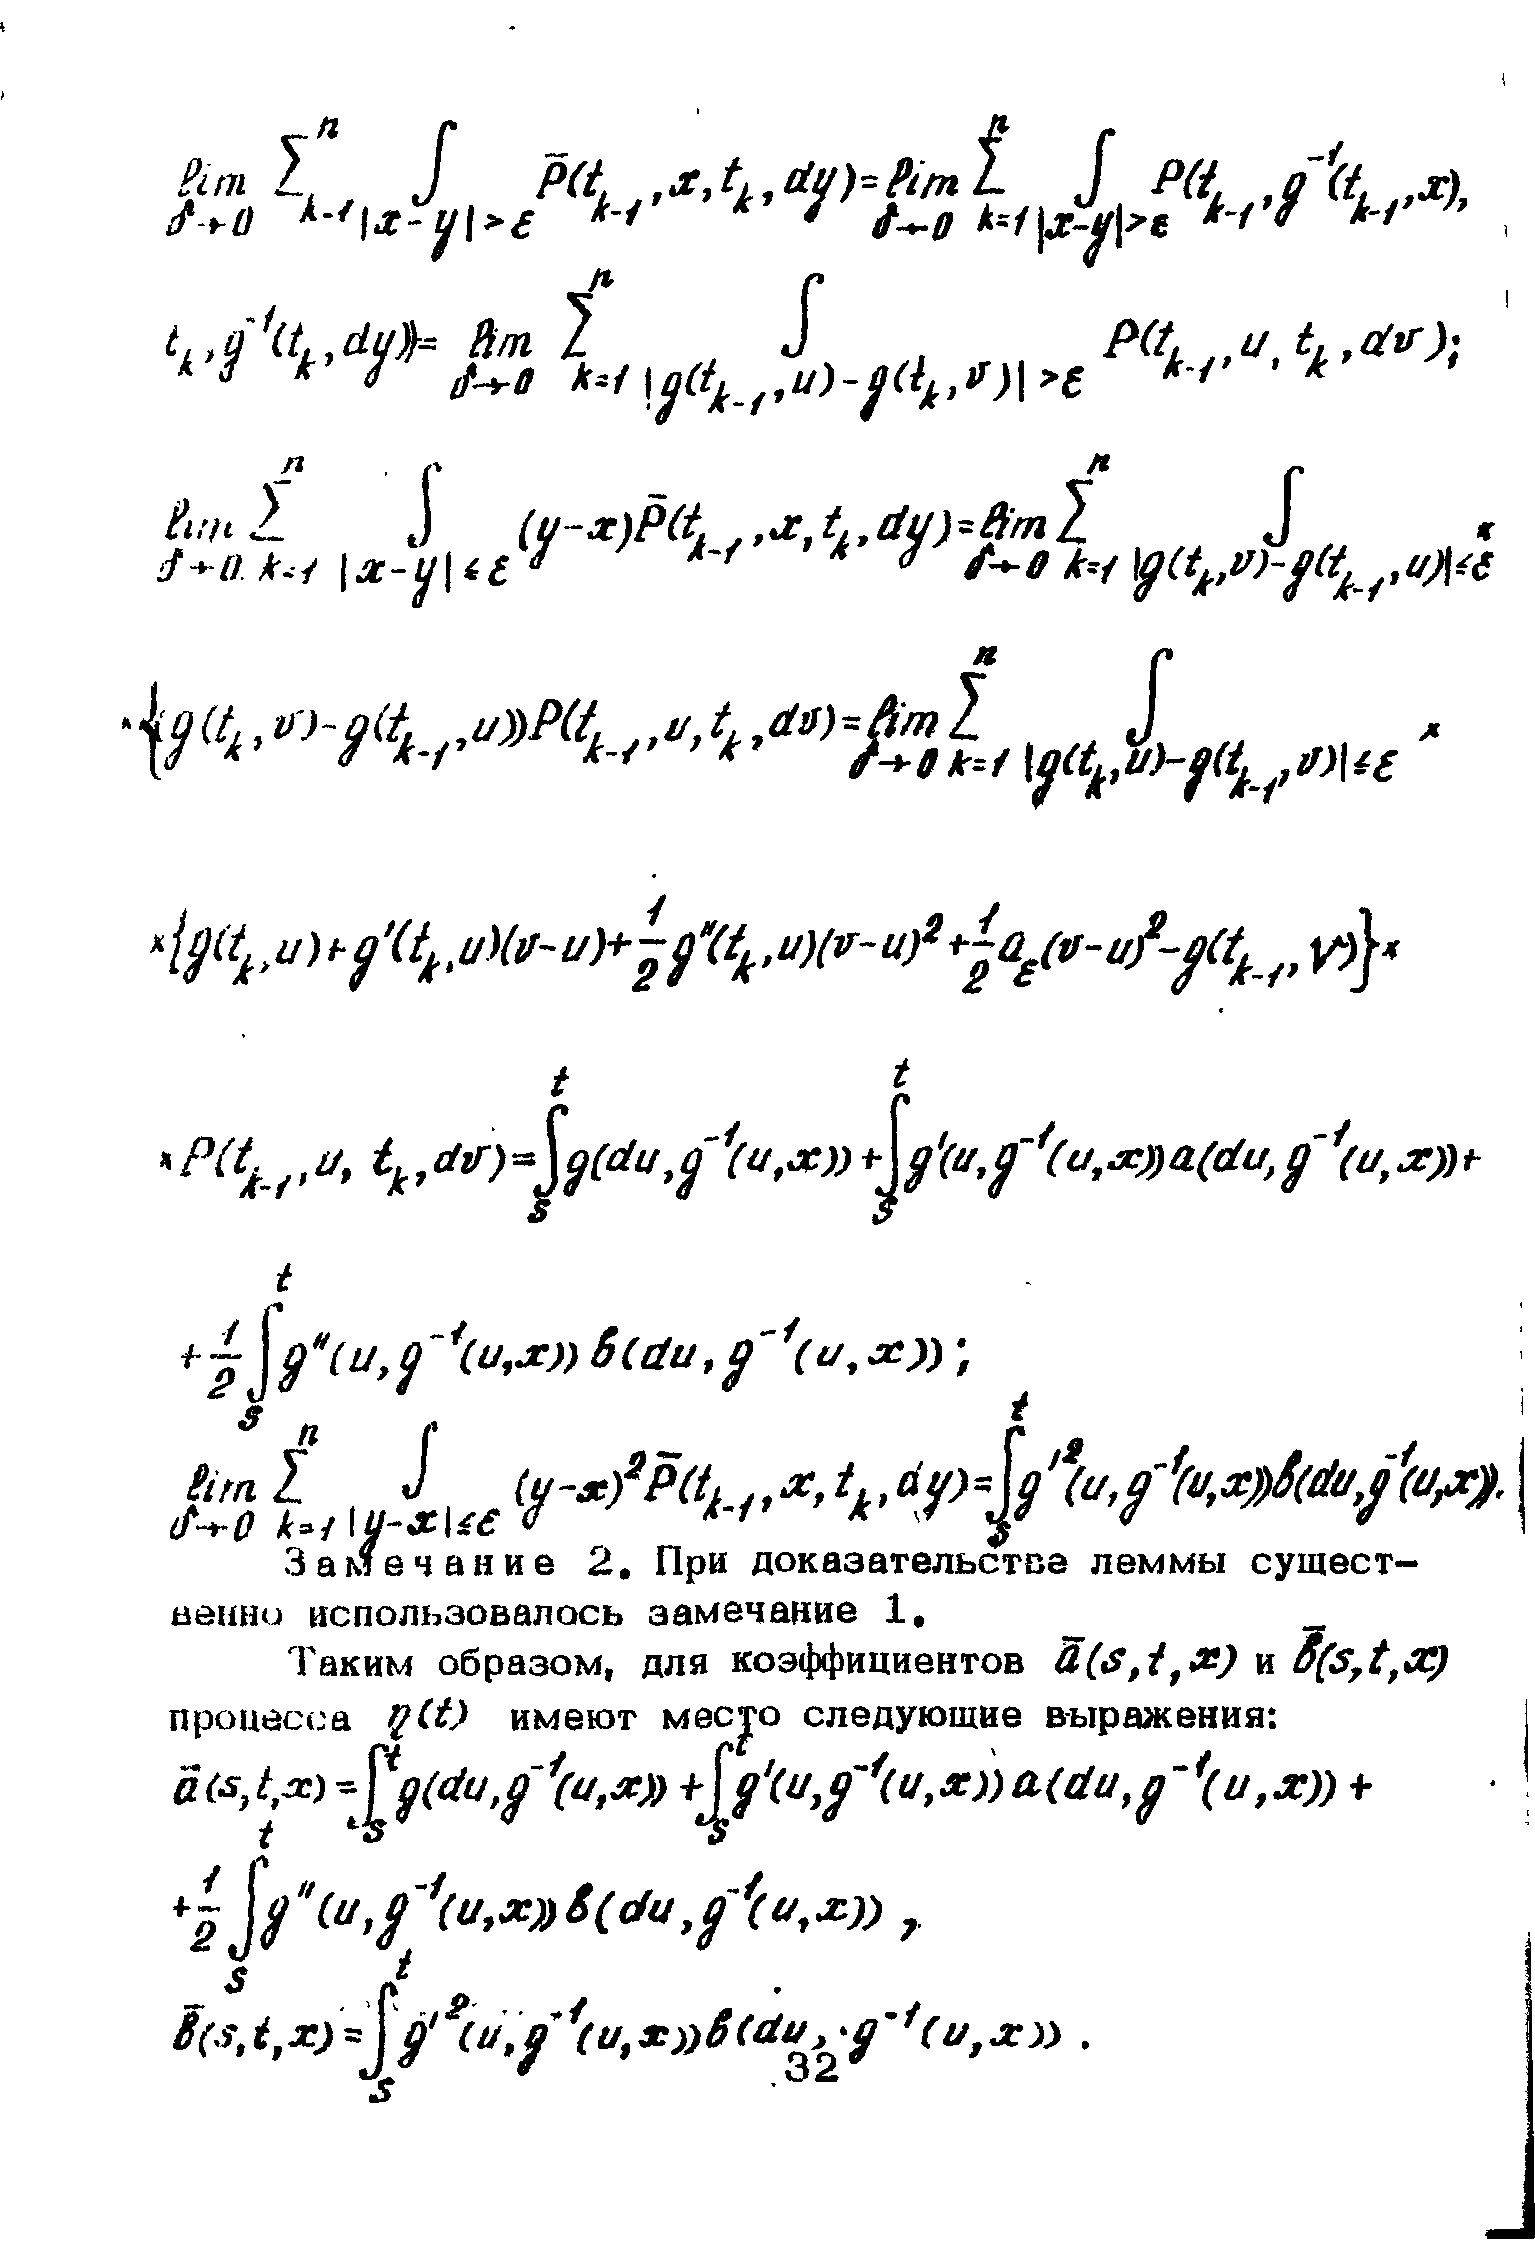 lim_{δ→0} Σ_{k-1}^{n} ∫_{|x-y|>ε} P̄(t_{k-1}, x, t_k, dy) = lim_{δ→0} Σ_{k=1}^{n} ∫_{|x-y|>ε} P(t_{k-1}, g^{-1}(t_{k-1}, x),
t_k, g^{-1}(t_k, dy)) = lim_{δ→0} Σ_{k=1}^{n} ∫_{|g(t_{k-1}, u) - g(t_k, v)| > ε} P(t_{k-1}, u, t_k, dv);
lim_{δ→0} Σ_{k=1}^{n} ∫_{|x-y|≤ε} (y-x) P̄(t_{k-1}, x, t_k, dy) = lim_{δ→0} Σ_{k=1}^{n} ∫_{|g(t_k, v) - g(t_{k-1}, u)| ≤ ε} ×
×{g(t_k, v) - g(t_{k-1}, u)) P(t_{k-1}, u, t_k, dv) = lim_{δ→0} Σ_{k=1}^{n} ∫_{|g(t_k, u) - g(t_{k-1}, v)| ≤ ε} ×
×{g(t_k, u) + g'(t_k, u)(v-u) + 1/2 g''(t_k, u)(v-u)^2 + 1/2 a_ε (v-u)^2 - g(t_{k-1}, V)}×
×P(t_{k-1}, u, t_k, dv) = ∫_s^t g(du, g^{-1}(u, x)) + ∫_s^t g'(u, g^{-1}(u, x)) a(du, g^{-1}(u, x)) +
+ 1/2 ∫_s^t g''(u, g^{-1}(u, x)) b(du, g^{-1}(u, x));
lim_{δ→0} Σ_{k=1}^{n} ∫_{|y-x|≤ε} (y-x)^2 P̄(t_{k-1}, x, t_k, dy) = ∫_s^t g'^2(u, g^{-1}(u, x)) b(du, g^{-1}(u, x)).
Замечание 2. При доказательстве леммы сущест-
венно использовалось замечание 1.
Таким образом, для коэффициентов ā(s, t, x) и b̄(s, t, x)
процесса η(t) имеют место следующие выражения:
ā(s, t, x) = ∫_s^t g(du, g^{-1}(u, x)) + ∫_s^t g'(u, g^{-1}(u, x)) a(du, g^{-1}(u, x)) +
+ 1/2 ∫_s^t g''(u, g^{-1}(u, x)) b(du, g^{-1}(u, x)),
b̄(s, t, x) = ∫_s^t g'^2(u, g^{-1}(u, x)) b(du, g^{-1}(u, x)).
32